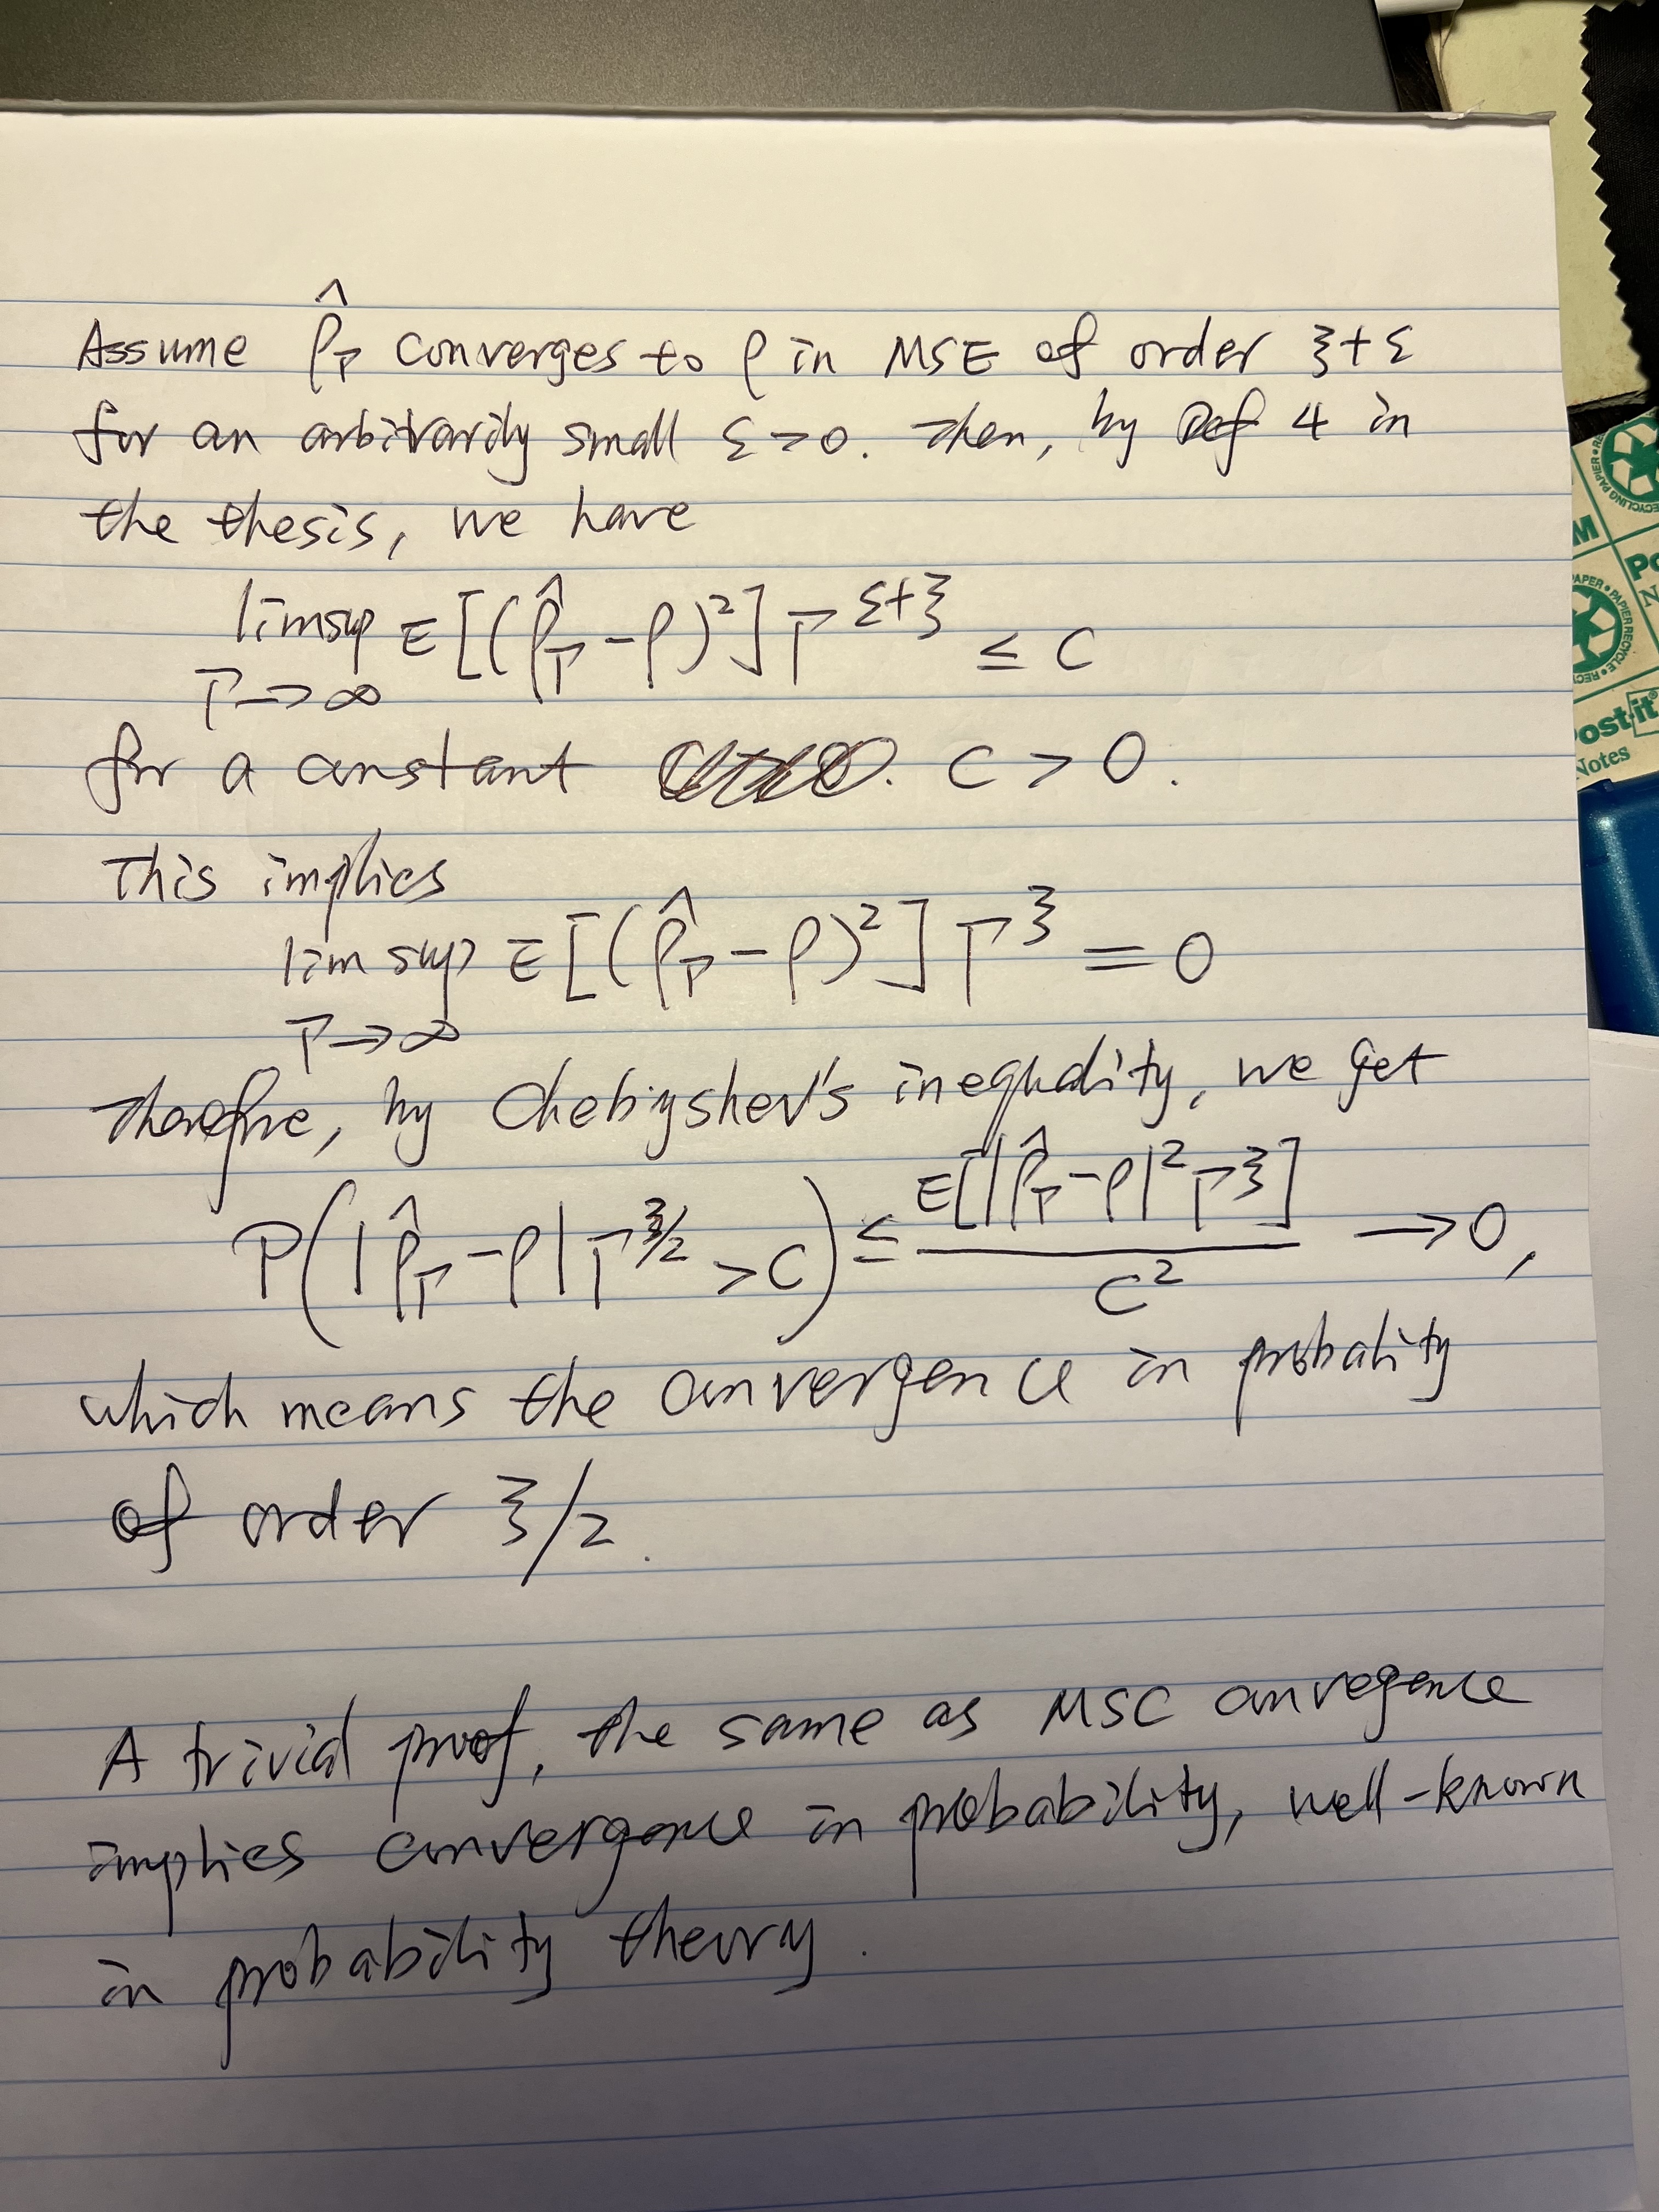 Assume ρ̂_T converges to ρ in MSE of order ξ+ε
for an arbitrarily small ε>0. Then, by Def 4 in
the thesis, we have
limsup_{T→∞} E[(ρ̂_T-ρ)²]T^{ε+ξ} ≤ C
for a constant C > 0.
This implies
lim sup_{T→∞} E[(ρ̂_T-ρ)²]T^ξ = 0
Therefore, by Chebyshev's inequality, we get
P(|ρ̂_T-ρ|T^{ξ/2} > C) ≤ E[|ρ̂_T-ρ|²T^ξ] / C² → 0,
which means the convergence in probality
of order ξ/2.
A trivial proof, the same as MSC convegence
implies convergence in probability, well-known
in probability theory.
Post-it®
Notes